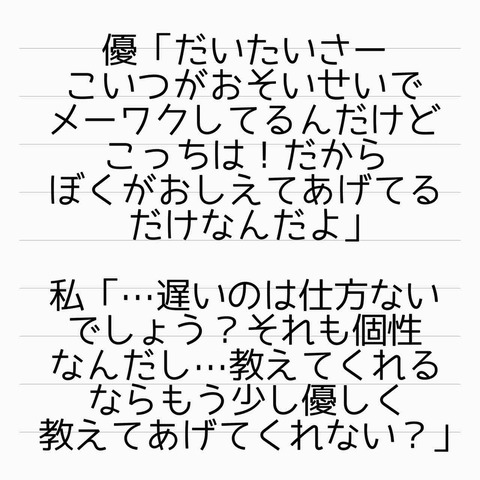 優「だいたいさー
こいつがおそいせいで
メーワクしてるんだけど
こっちは！だから
ぼくがおしえてあげてる
だけなんだよ」
私「…遅いのは仕方ない
でしょう？それも個性
なんだし…教えてくれる
ならもう少し優しく
教えてあげてくれない？」